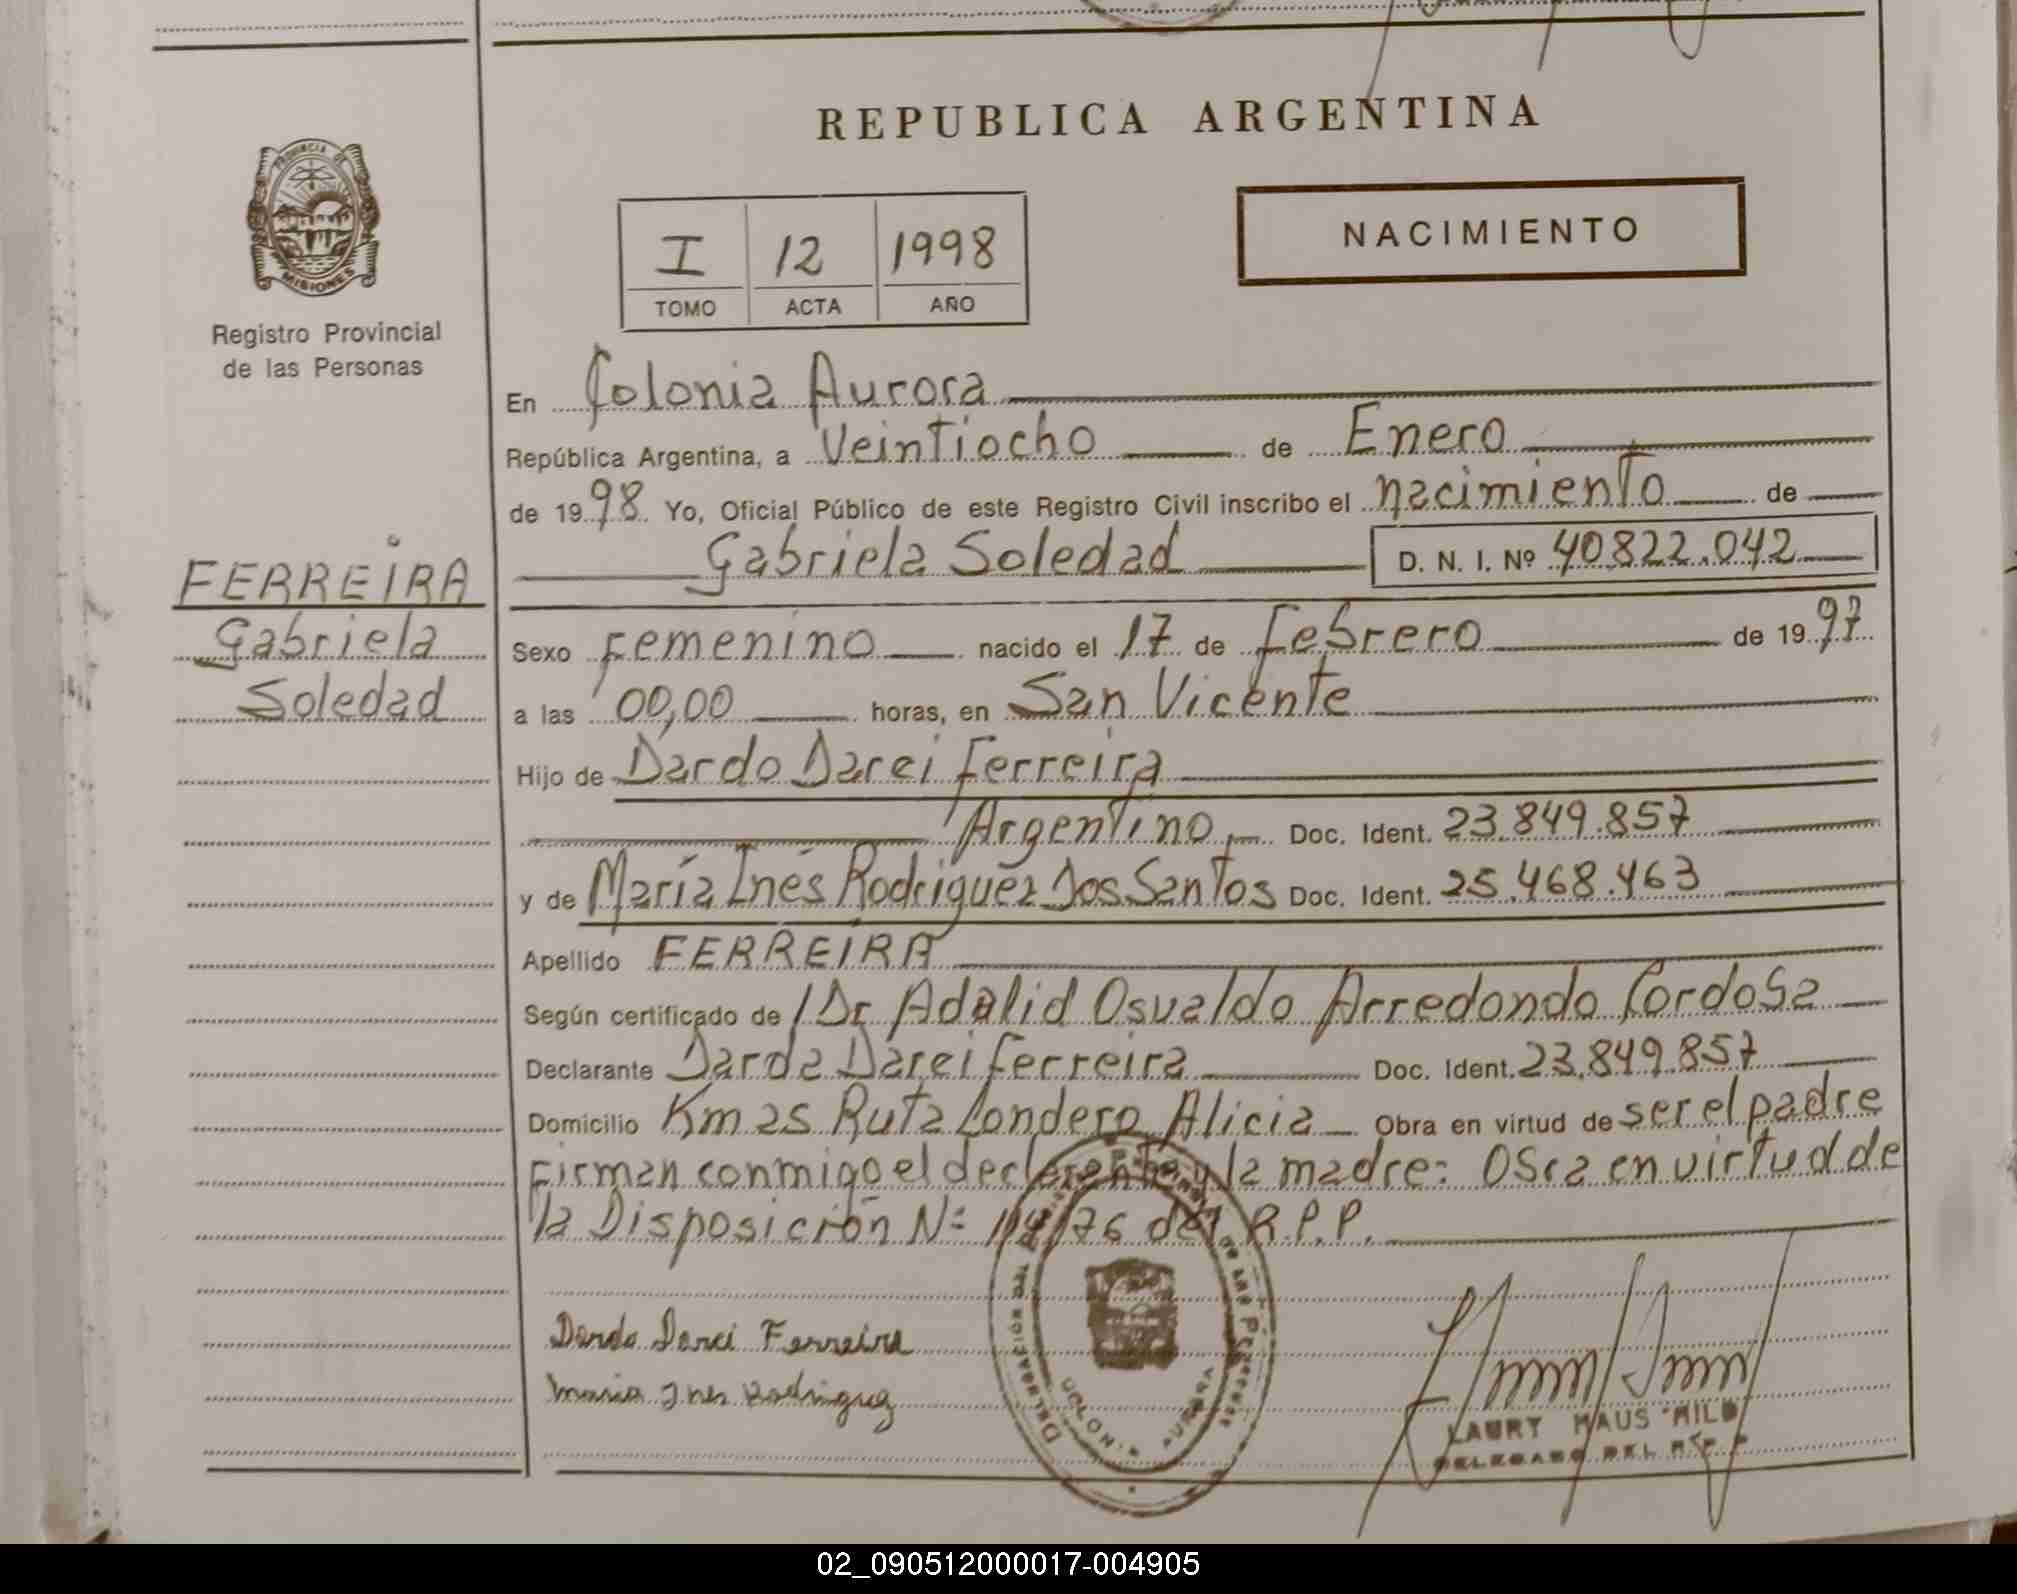 REPUBLICA ARGENTINA
PROVINCIA DE
MISIONES
Registro Provincial
de las Personas
NACIMIENTO
I 12 1998
TOMO ACTA AÑO
En Colonia Aurora
República Argentina, a Veintiocho de Enero
de 1998 Yo, Oficial Público de este Registro Civil inscribo el nacimiento de
Gabriela Soledad D. N. I. Nº 40822.042
FERREIRA
Gabriela
Soledad
Sexo Femenino nacido el 17 de Febrero de 1997
a las 00,00 horas, en San Vicente
Hijo de Dardo Darci Ferreira
Argentino Doc. Ident. 23.849.857
y de María Inés Rodriguez Dos Santos Doc. Ident. 25.468.463
Apellido FERREIRA
Según certificado de Dr Adalid Osvaldo Arredondo Cordoba
Declarante Darda Darci Ferreira Doc. Ident. 23.849.857
Domicilio Km 25 Ruta Londero Alicia Obra en virtud de ser el padre
Firman conmigo el declarante y la madre: Obra en virtud de
la Disposición Nº /76 del R.P.P.
Dardo Darci Ferreira
Maria Ines Rodriguez
COLONIA AURORA
LAURY HAUS MILD
DELEGADO DEL R.P.P
02_090512000017-004905